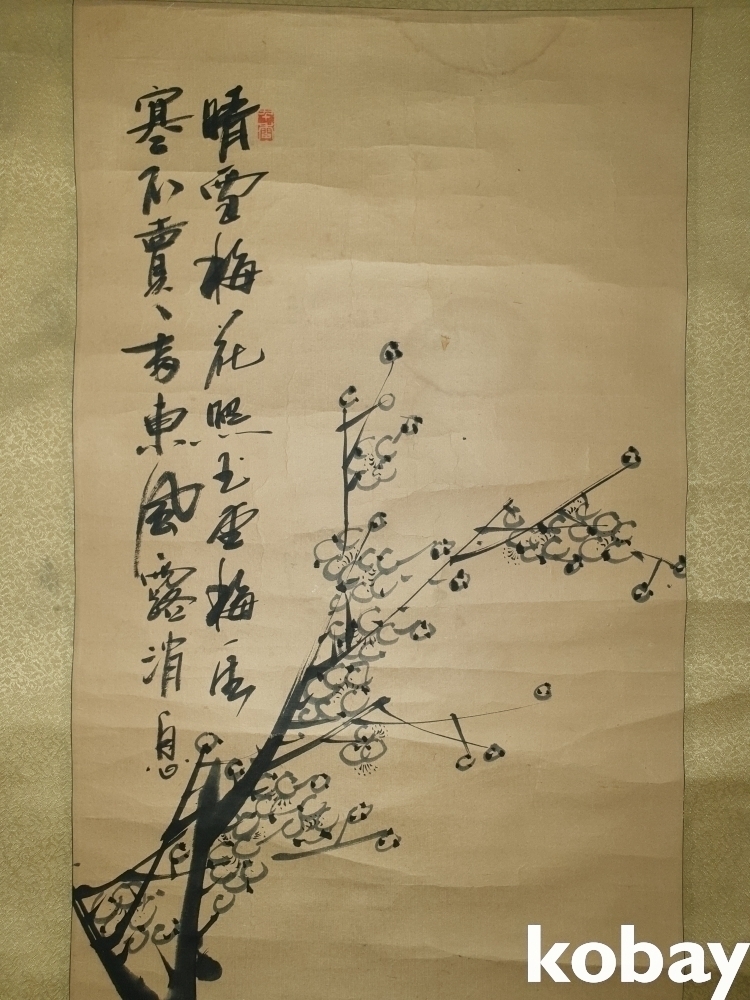 晴雪梅花照玉堂梅一生
寒不賣香東風露消息
kobay